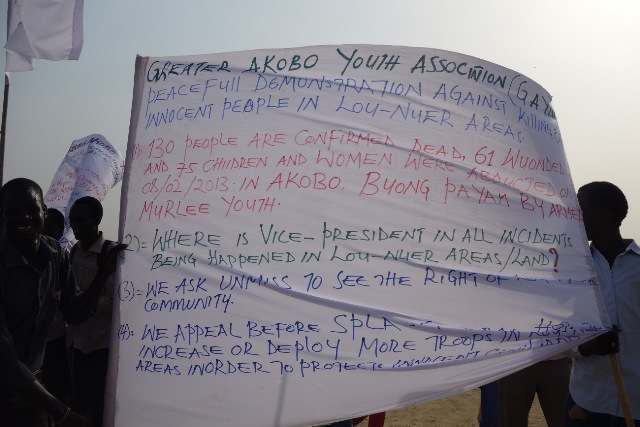 GREATER AKOBO YOUTH ASSOCITION (GAY
PEACEFULL DEMONSTRATION AGAINST KILLING
INNOCENT PEOPLE IN LOU-NUER AREAS.
130 PEOPLE ARE CONFIRMED DEAD, 61 WUONDED
AND 75 CHILDREN AND WOMEN WERE ABDUCTED ON
08/02/2013. IN AKOBO. BUONG PAYAM BY ARMED
MURLEE YOUTH.
2)= WHERE IS VICE-PRESIDENT IN ALL INCIDENTS
BEING HAPPENED IN LOU-NUER AREAS/LAND?
(3)= WE ASK UNMISS TO SEE THE RIGHT OF
COMMUNITY.
(4)= WE APPEAL BEFORE SPLA
INCREASE OR DEPLOY MORE TROOPS IN
AREAS INORDER TO PROTECT INNOCENT